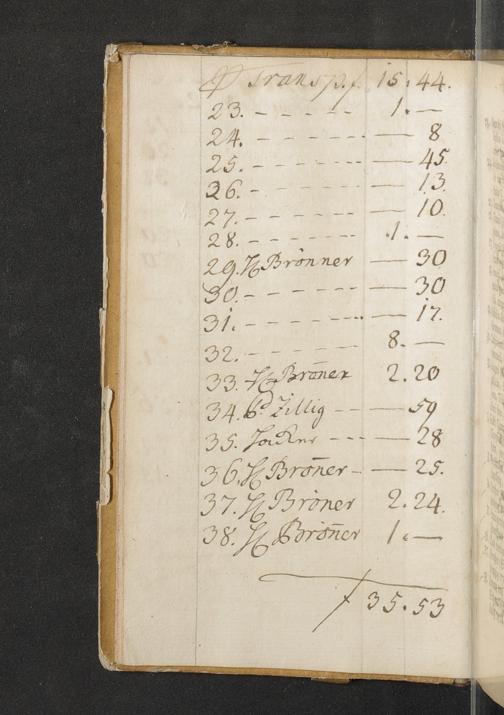 Transp. f 15. 44.
23. - - - - - 1. —
24. - - - - - — 8
25. - - - - - — 45
26. - - - - - — 13
27. - - - - - — 10
28. - - - - - 1. —
29. H Brönner — 30
30. - - - - - — 30
31. - - - - - — 17.
32. - - - - - 8. —
33. H Bröner 2. 20
34. Zillig - - — 59
35. - - - — 28
36. H Broner - — 25.
37. H Bröner 2. 24.
38. H Broner 1. —
f 35. 53